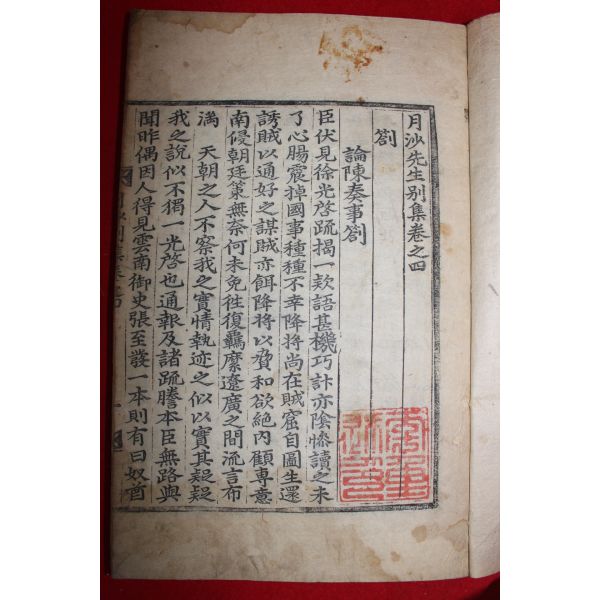 月沙先生別集卷之四
劄
論陳奏事劄
臣伏見徐光啓疏揭一款語甚機巧計亦陰慘讀之未
了心腸震掉國事種種不幸降將尚在賊窟自圖生還
誘賊以通好之謀賊亦餌降將以脅和欲絶内顧專意
南侵朝廷策無奈何未免徃復羈縻遼廣之間流言布
滿 天朝之人不察我之實情執迹之似以實其疑疑
我之說似不獨一光啓也通報及諸疏謄本臣無路與
聞昨偶因人得見雲南御史張至發一本則有曰奴酋